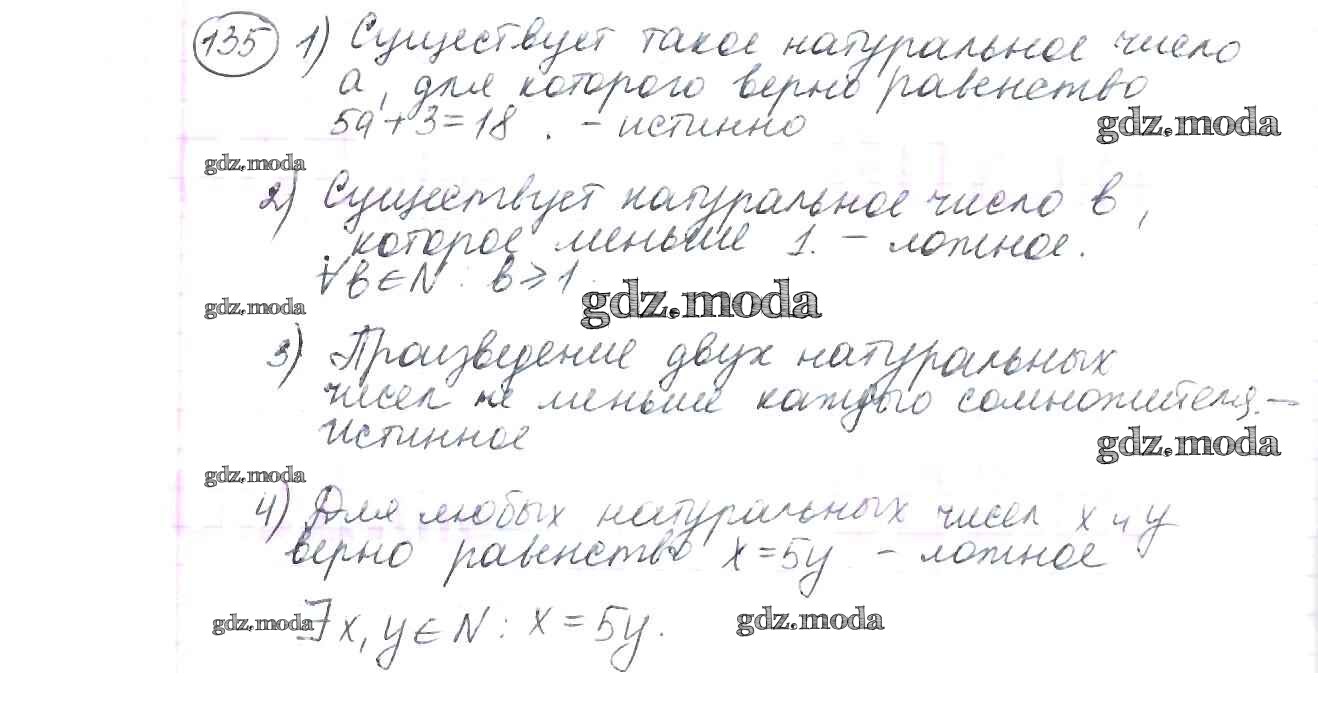 135 1) Существует такое натуральное число
а, для которого верно равенство
5а+3=18. - истинно
gdz.moda
gdz.moda
2) Существует натуральное число в,
которое меньше 1. - ложное.
∀в∈N: в⩾1.
gdz.moda
gdz.moda
3) Произведение двух натуральных
чисел не меньше каждого сомножителя. -
истинное
gdz.moda
gdz.moda
4) Для любых натуральных чисел х и у
верно равенство х=5у - ложное
gdz.moda
∃ х, у ∈ N: х = 5у.
gdz.moda